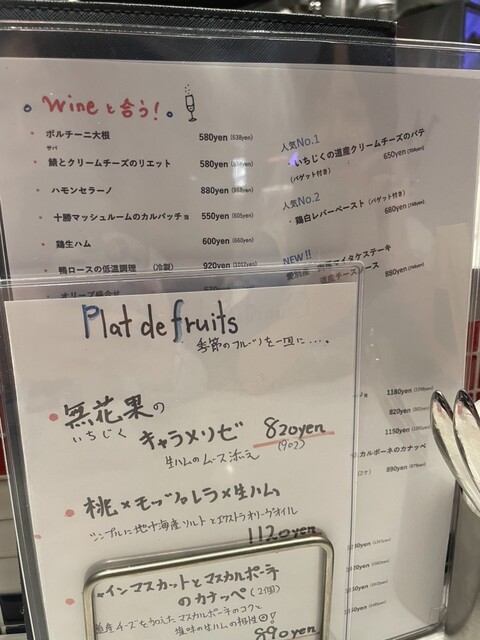 wineと合う!
ポルチーニ大根 580yen (638yen)
サバ
鯖とクリームチーズのリエット 580yen
ハモンセラーノ 880yen
十勝マッシュルームのカルパッチョ 550yen (605yen)
鶏生ハム 600yen (660yen)
鴨ロースの低温調理 (冷製) 920yen (1012yen)
人気No.1
いちじくの道産クリームチーズのパテ
(バゲット付き) 650yen
人気No.2
鶏白レバーペースト (バゲット付き)
680yen
NEW!!
マイタケステーキ
道産チーズソース
880yen
1180yen
820yen
1150yen
カルポーネのカナッペ
890yen
Plat de fruits
季節のフルーツを一皿に....。
無花果の
いちじく キャラメリゼ 820yen
(902)
生ハムのムース添え
桃×モッツァレラ×生ハム
シンプルに地中海産ソルトとエクストラオリーヴオイル
1120yen
インマスカットとマスカルポーネ
のカナッペ (2個)
産チーズを加えたマスカルポーネのコクと
塩味の生ハムの相性◎!
890yen